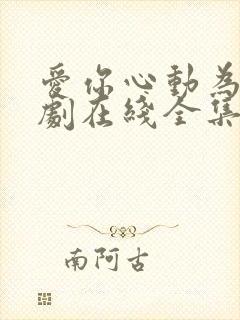 愛你心動為
劇在綫全集
南阿古